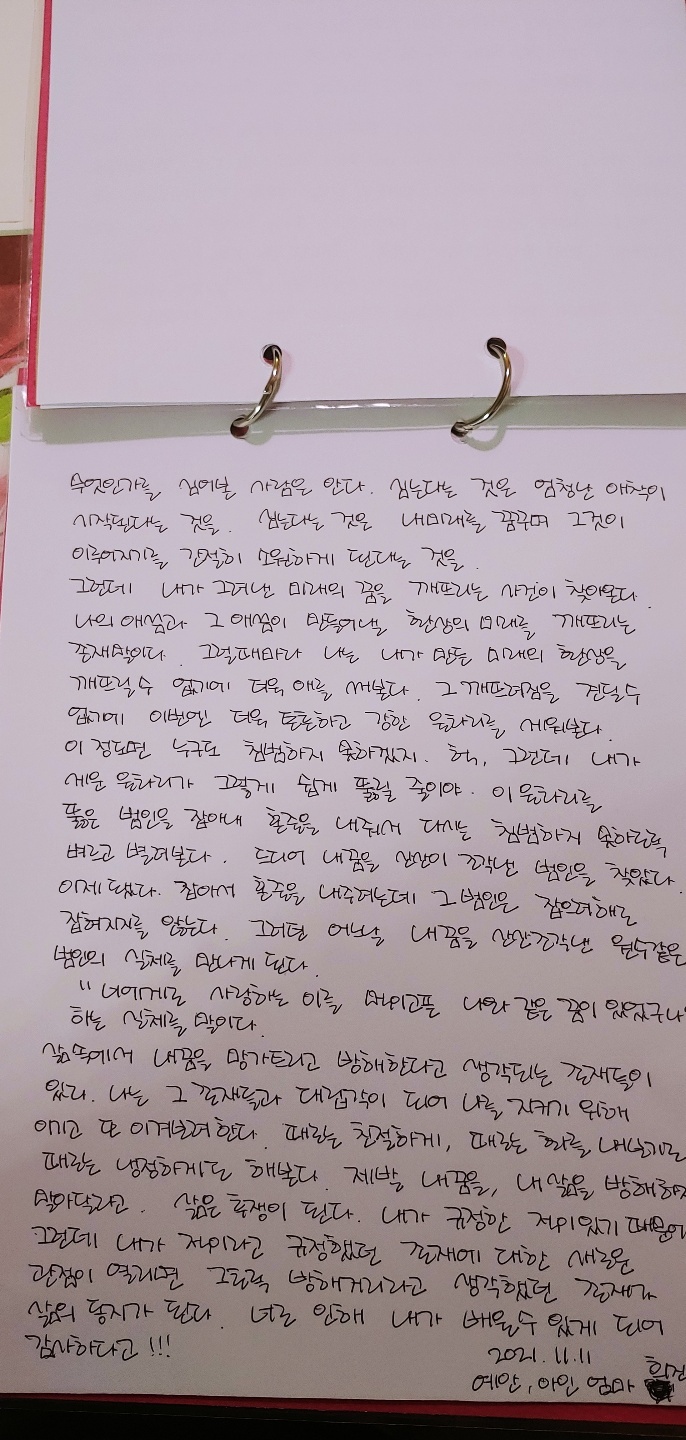 무엇인가를 심어본 사람은 안다. 심는다는 것은 엄청난 애착이
시작된다는 것을. 심는다는 것은 내미래를 꿈꾸며 그것이
이루어지기를 간절히 소원하게 된다는 것을.
그런데 내가 그려낸 미래의 꿈을 깨뜨리는 사건이 찾아온다.
나의 애씀과 그 애씀이 만들어낼 환상의 미래를 깨뜨리는
존재말이다. 그럴때마다 나는 내가 만든 미래의 환상을
깨뜨릴수 없기에 더욱 애를 써본다. 그 깨뜨려짐을 견딜수
없기에 이번엔 더욱 튼튼하고 강한 울타리를 세워본다.
이 정도면 누구도 침범하지 못하겠지. 헉, 그런데 내가
세운 울타리가 그렇게 쉽게 뚫릴 줄이야. 이 울타리를
뚫은 범인을 잡아내 혼줄을 내줘서 다시는 침범하지 못하도록
벼르고 별려본다. 드디어 내꿈을 산산이 조각낸 범인을 찾았다.
이제 됐다. 잡아서 혼줄을 내주려는데 그 범인은 잡으려해도
잡혀지지를 않는다. 그러던 어느날 내 꿈을 산산조각낸 원수같은
범인의 실체를 만나게 된다.
"너에게도 사랑하는 이를 먹이고픈 나와 같은 꿈이 있었구나"
하는 실체를 말이다.
삶 속에서 내꿈을 망가트리고 방해한다고 생각되는 존재들이
있다. 나는 그 존재들과 대립각이 되어 나를 지키기 위해
애쓰고 또 이겨보려 한다. 때로는 친절하게, 때로는 화를 내보기도
때로는 냉정하게도 해본다. 제발 내꿈을, 내 삶을 방해하지
말아달라고. 삶은 투쟁이 된다. 내가 규정한 적이 있기 때문이
그런데 내가 적이라고 규정했던 존재에 대한 새로운
관점이 열리면 그토록 방해거리라고 생각했던 존재가
삶의 동지가 된다. 너로 인해 내가 배울수 있게 되어
감사하다고!!!
2021. 11. 11
예안, 아인 엄마 희진